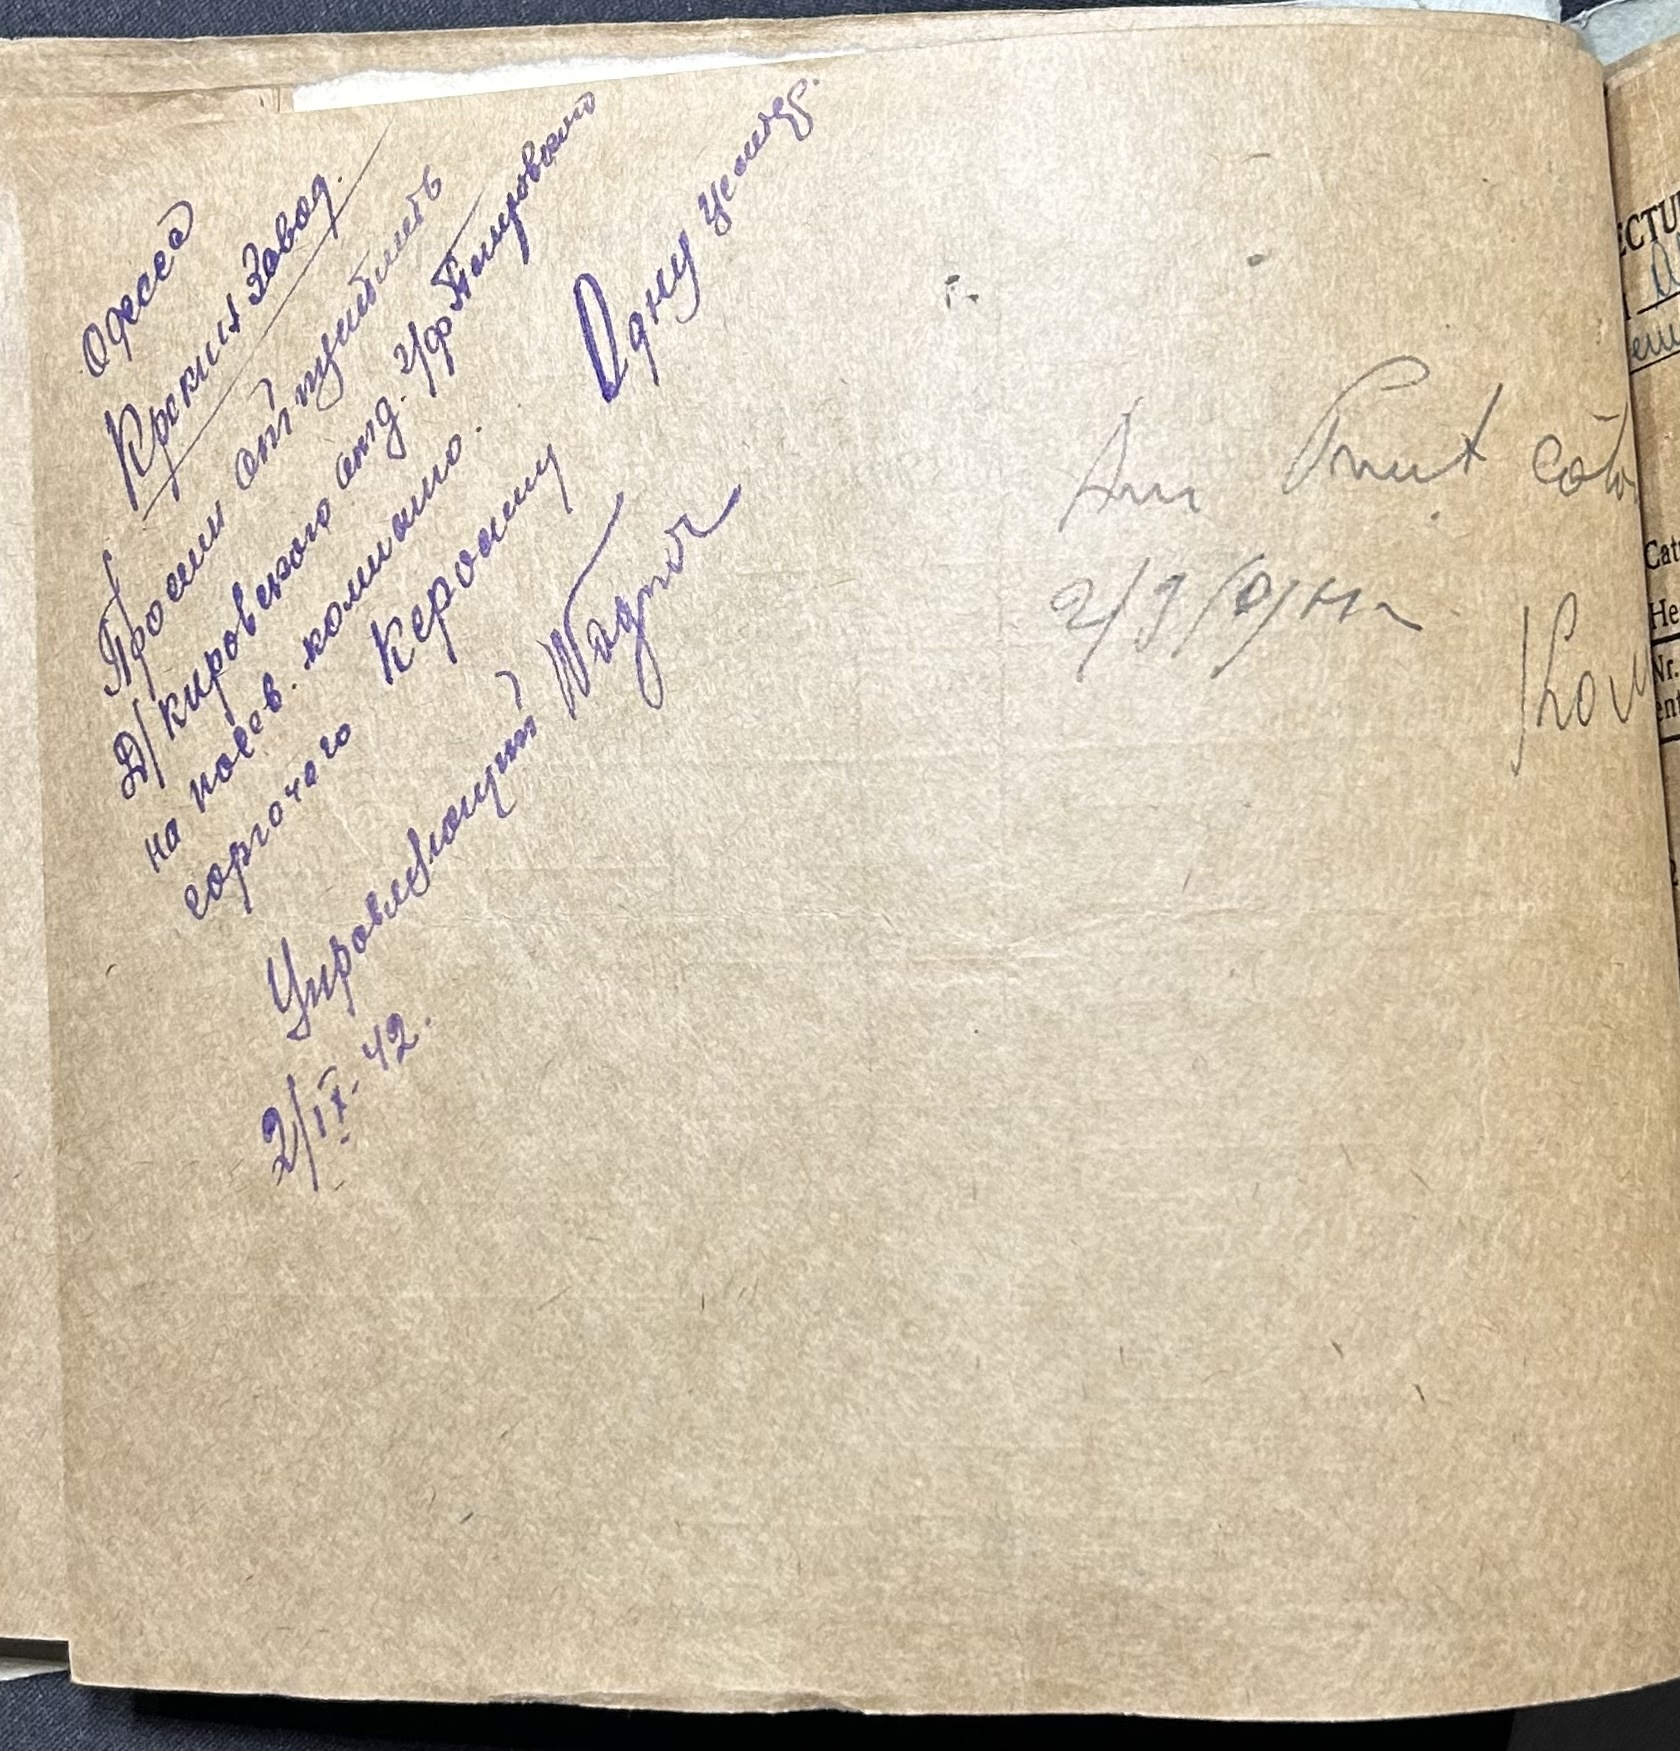 Одесса
Крекинг Завод.
Просим отпустить
Д/ Кировского отд. з/ф
на посев. компанию.
горючего Керосину Одну цестер.
Управляющий Wagner
2/IX - 42.
Am Primit
2/9
Kom
ECTU
Cat
He
Nr.
ent